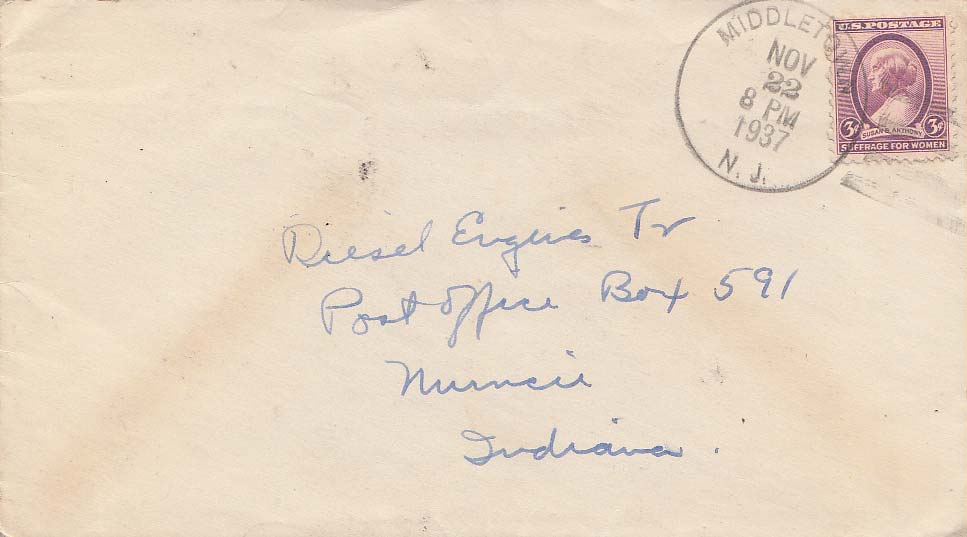 MIDDLETOWN
NOV
22
8 PM
1937
N. J.
U.S. POSTAGE
3¢ SUSAN B. ANTHONY 3¢
SUFFRAGE FOR WOMEN
Diesel Engines Tr
Post Office Box 591
Muncie
Indiana.